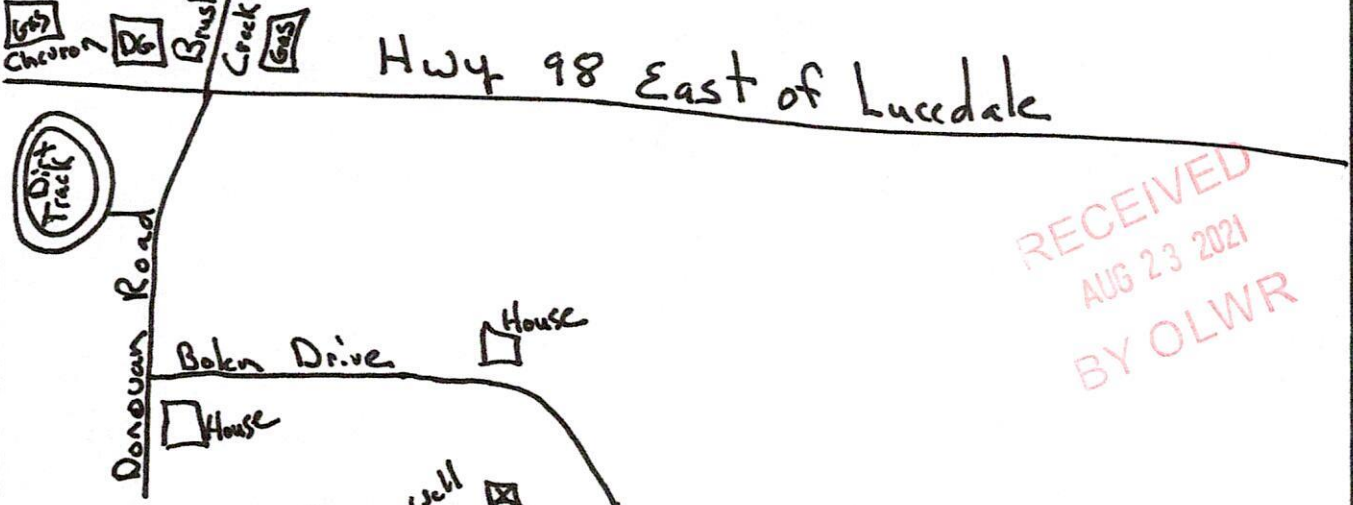 Gas
Chevron
DG
Brush
Creek
Gas
Hwy 98 East of Lucedale
Dirt
Track
Donovan Road
RECEIVED
AUG 23 2021
BY OLWR
House
Drive
House
well